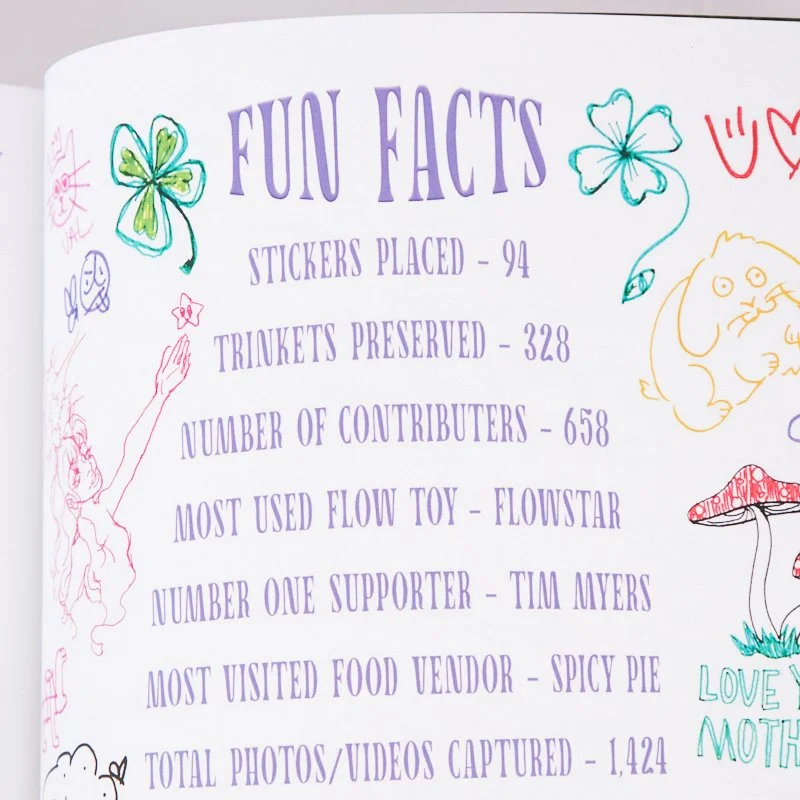 FUN FACTS
STICKERS PLACED - 94
TRINKETS PRESERVED - 328
NUMBER OF CONTRIBUTERS - 658
MOST USED FLOW TOY - FLOWSTAR
NUMBER ONE SUPPORTER - TIM MYERS
MOST VISITED FOOD VENDOR - SPICY PIE
TOTAL PHOTOS/VIDEOS CAPTURED - 1,424
VAL
LOVE